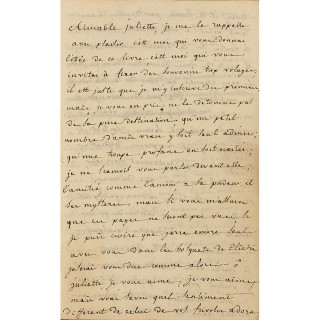 Aimable juliette, je me le rappelle
avec plaisir cest moi qui vous donna
lidée de ce livre cest moi qui vous
invitai a fixer des souvenirs trop volages,
il est juste que je my inscrive du premier,
mais, je vous en prie, ne le détournez pas
de sa pure destination, qu un petit
nombre d'amis vrais y soit seul admis,
qu une troupe profane en soit ecartée,
je ne saurois vous parler devant elle,
l'amitié comme l'amour a sa pudeur et
ses mysteres, mais si vous massurez
que ces pages ne seront pas vues, si
je puis croire que jerre encore seul
avec vous dans les bosquets de
jaimerai vous dire comme alors, ô
juliette je vous aime, je vous aime,
mais vous savez quel sentiment
different de celui de vos frivoles adora